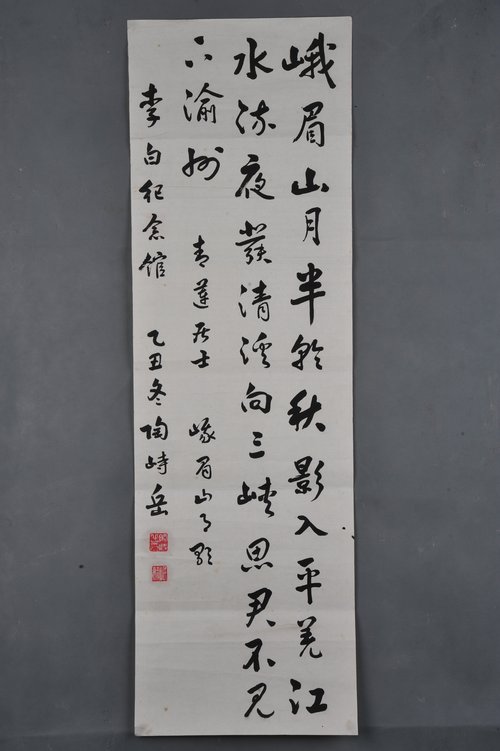 峨眉山月半轮秋影入平羌江
水流夜發清溪向三峡思君不见
下渝州 青莲居士 峨眉山月歌
李白纪念馆 乙丑冬陶峙岳